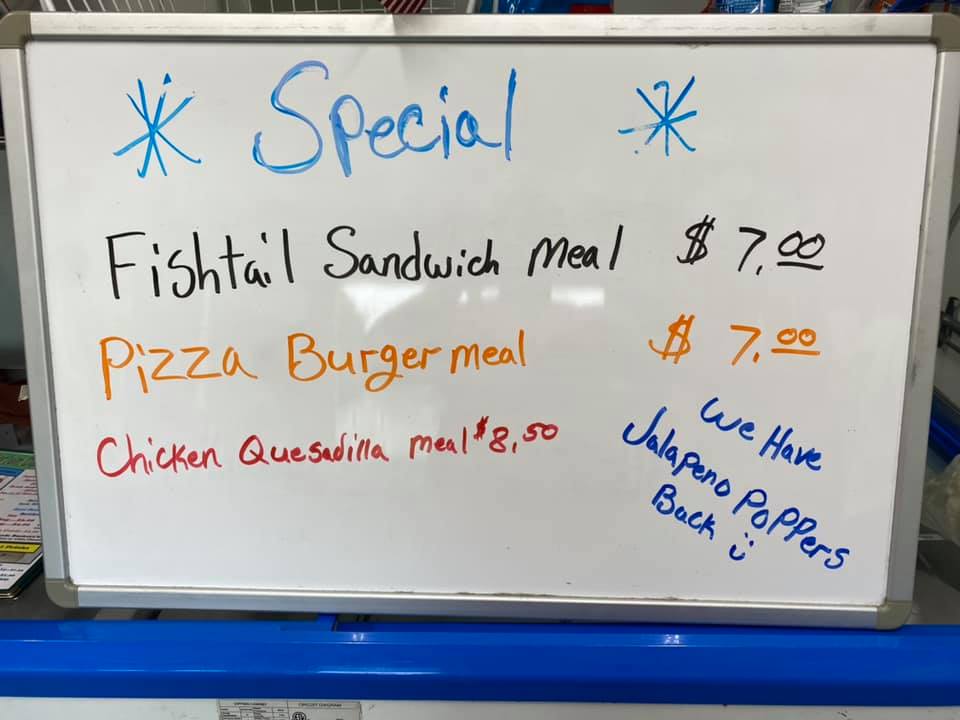 * Special *
Fishtail Sandwich meal $ 7.00
Pizza Burger meal $ 7.00
Chicken Quesadilla meal $8.50
We Have
Jalapeno Poppers
Back :)
CIRCUIT DIAGRAM